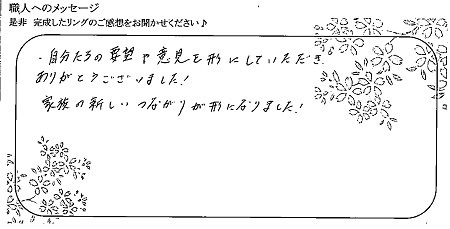 職人へのメッセージ
是非 完成したリングのご感想をお聞かせください♪
・自分たちの要望や意見を形にしていただき
ありがとうございました!
家族の新しいつながりが形になりました!